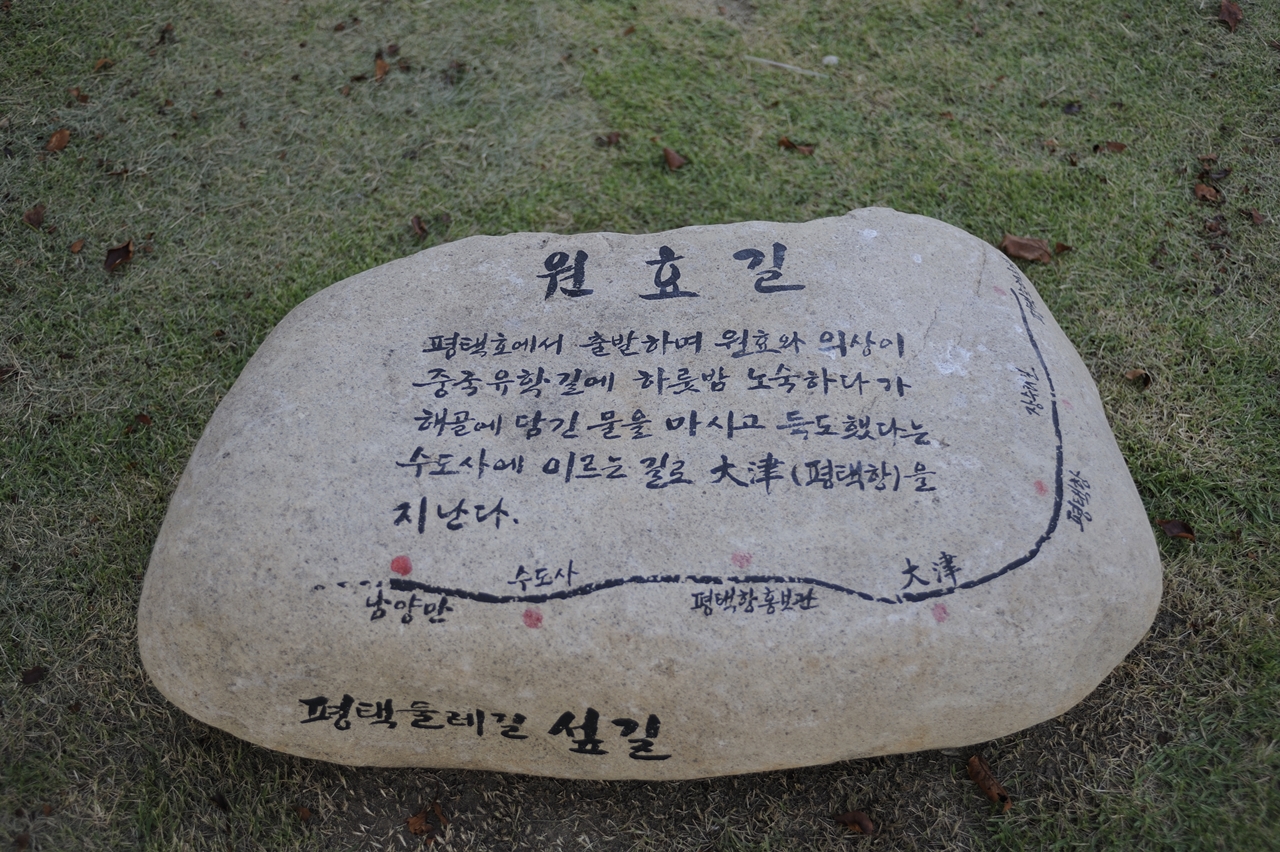 원효길
평택호에서 출발하며 원효와 의상이
중국유학길에 하룻밤 노숙하다가
해골에 담긴 물을 마시고 득도했다는
수도사에 이르는 길로 大津(평택항)을
지난다.
장수보
평택항
大津
수도사
평택항홍보관
남양만
평택둘레길 섶길